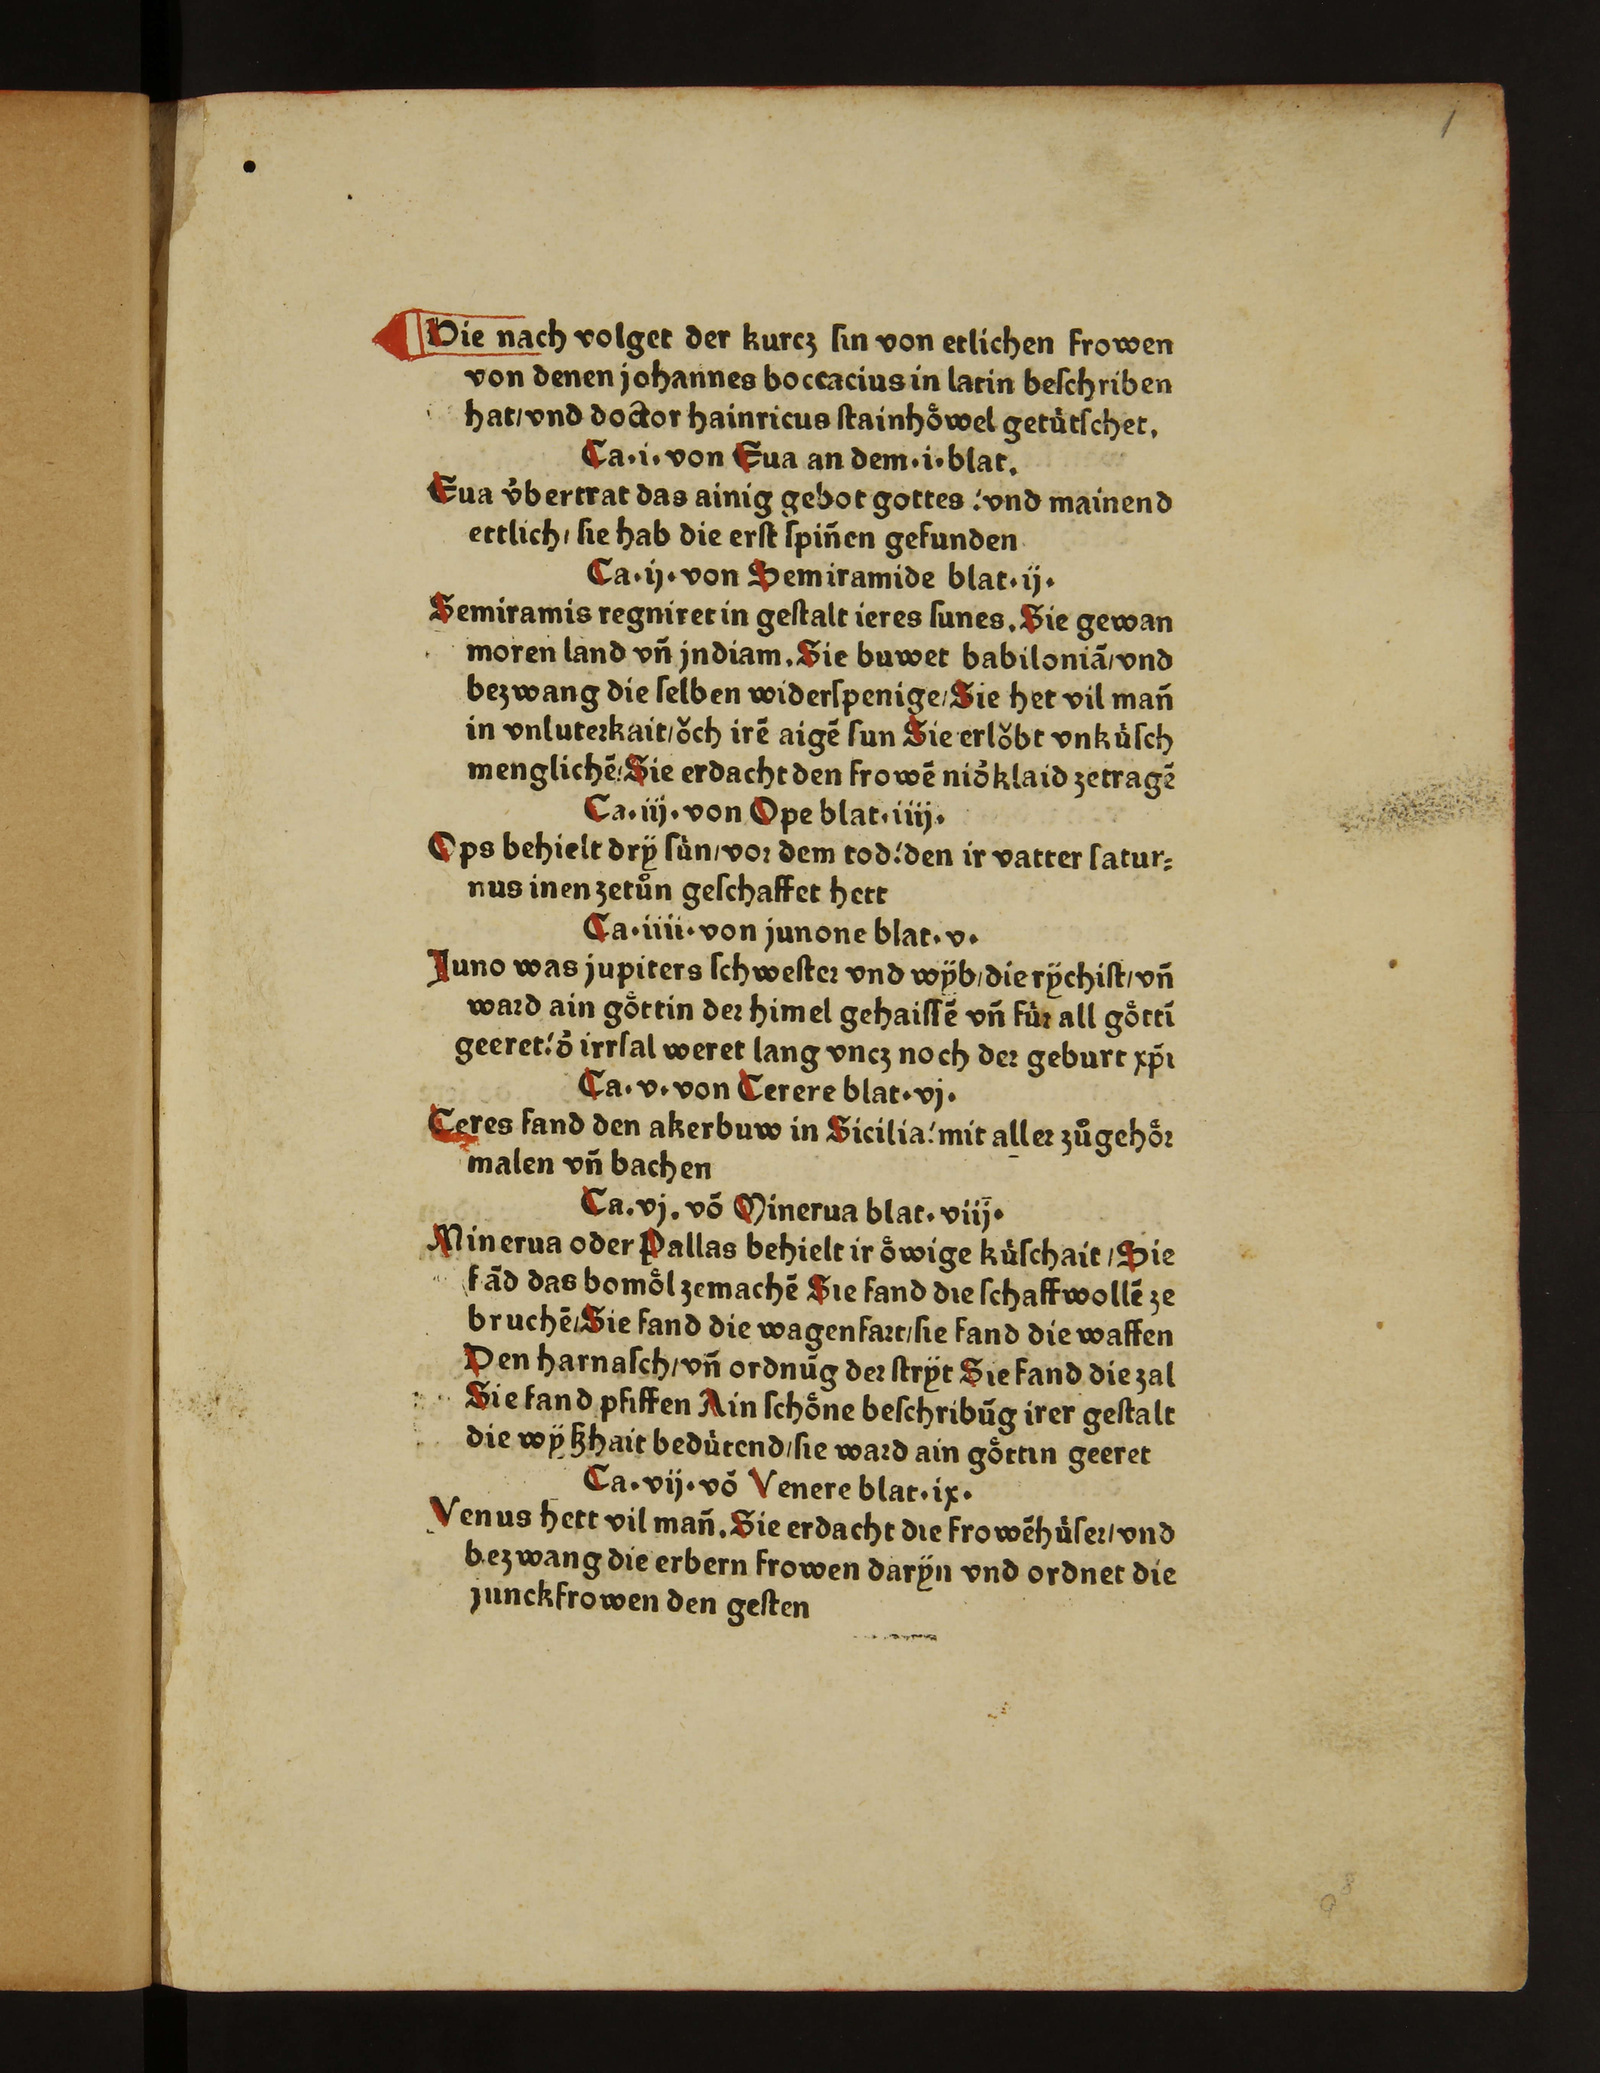 1
Hie nach volget der kurcz sin von etlichen frowen
von denen johannes boccacius in latin beschriben
hat/vnd doctor hainricus stainhoͤwel getuͤtschet.
Ca.i.von Eua an dem.i.blat.
Eua vͤbertrat das ainig gebot gottes:vnd mainend
ettlich/sie hab die erst spin̄en gefunden
Ca.ij.von Semiramide blat.ij.
Semiramis regniret in gestalt ieres sunes.Sie gewan
moren land vn̄ jndiam.Sie buwet babiloniā/vnd
bezwang die selben widerspenige/Sie het vil man̄
in vnluterkait/ǒch irē aigē sun Sie erlǒbt vnkuͤsch
menglichē/Sie erdacht den frowē nid̕klaid zetragē
Ca.iij.von Ope blat.iiij.
Ops behielt drÿ suͤn/vor dem tod:den ir vatter satur⸗
nus inen zetůn geschaffet hett
Ca.iiii.von junone blat.v.
Juno was jupiters schwester vnd wÿb/die rÿchist/vn̄
ward ain goͤttin der himel gehaissē vn̄ fuͤr all goͤttī
geeret:d̕ irrsal weret lang vncz noch der geburt xp̄i
Ca.v.von Cerere blat.vj.
Ceres fand den akerbuw in Sicilia:mit aller zůgehoͤr
malen vn̄ bachen
Ca.vj.vō Minerua blat.viij.
Minerua oder Pallas behielt ir oͤwige kuͤschait/Sie
fād das bomoͤl zemachē Sie fand die schaffwollē ze
bruchē/Sie fand die wagenfart/sie fand die waffen
Den harnasch/vn̄ ordnūg der strÿt Sie fand die zal
Sie fand pfiffen Ain schoͤne beschribūg irer gestalt
die wÿßhait beduͤtend/sie ward ain goͤttin geeret
Ca.vij.vō Venere blat.ix.
Venus hett vil man̄.Sie erdacht die frowēhuͤser/vnd
bezwang die erbern frowen darÿn vnd ordnet die
junckfrowen den gesten